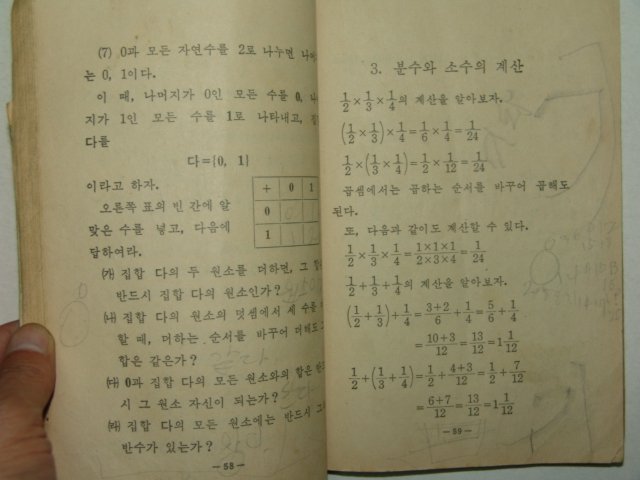 (7) 0과 모든 자연수를 2로 나누면
는 0, 1이다.
이 때, 나머지가 0인 모든 수를 0,
지가 1인 모든 수를 1로 나타내고,
다를
다={0, 1}
이라고 하자.
오른쪽 표의 빈 간에 알
맞은 수를 넣고, 다음에
답하여라.
+ 0 1
0 0
1 1
㈎ 집합 다의 두 원소를 더하면, 그
반드시 집합 다의 원소인가?
㈏ 집합 다의 원소의 덧셈에서 세 수를
할 때, 더하는 순서를 바꾸어 더해도
합은 같은가? 같다.
㈐ 0과 집합 다의 모든 원소와의 합은
시 그 원소 자신이 되는가?
㈑ 집합 다의 모든 원소에는 반드시
반수가 있는가?
— 58 —
3. 분수와 소수의 계산
1/2×1/3×1/4의 계산을 알아보자.
(1/2×1/3)×1/4=1/6×1/4=1/24
1/2×(1/3×1/4)=1/2×1/12=1/24
곱셈에서는 곱하는 순서를 바꾸어 곱해도
된다.
또, 다음과 같이도 계산할 수 있다.
1/2×1/3×1/4=1×1×1/2×3×4=1/24
1/2+1/3+1/4의 계산을 알아보자.
(1/2+1/3)+1/4=3+2/6+1/4=5/6+1/4
=10+3/12=13/12=1 1/12
1/2+(1/3+1/4)=1/2+4+3/12=1/2+7/12
=6+7/12=13/12=1 1/12
— 59 —